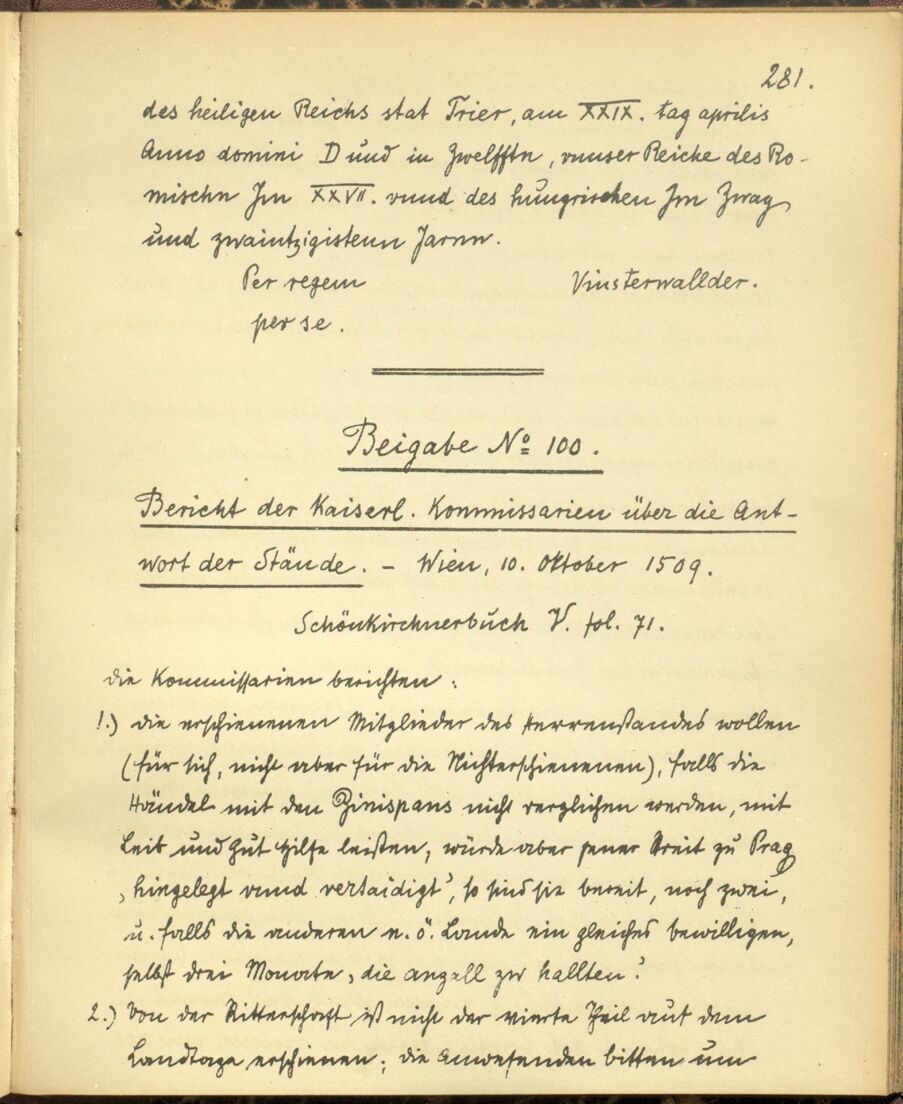 281.
des heiligen Reichs stat Trier, am XXIX. tag aprilis
Anno domini D und in Zwelfftn, vnnser Reiche des Ro-
mischn Jm XXVII. vnnd des hungrischen Jm Zway
und zwaintzigistenn Jarnn.
Per regem Vinsterwallder.
per se.
Beigabe No 100.
Bericht der Kaiserl. Kommissarien über die Ant-
wort der Stände. – Wien, 10. Oktober 1509.
Schönkirchnerbuch V. fol. 71.
die Kommissarien berichten:
1.) die erschienenen Mitglieder des Herrenstandes wollen
(für sich, nicht aber für die Nichterschienenen), falls die
Händel mit den Zinispans nicht verglichen werden, mit
Leib und Gut Hilfe leisten; würde aber jener Streit zu Prag
„hingelegt vnnd vertaidigt", so sind sie bereit, noch zwei,
u. falls die anderen n. ö. Lande ein gleiches bewilligen,
selbst drei Monate „die anzall zw hallten".
2.) Von der Ritterschaft ist nicht der vierte Theil auf dem
Landtage erschienen; die Anwesenden bitten um